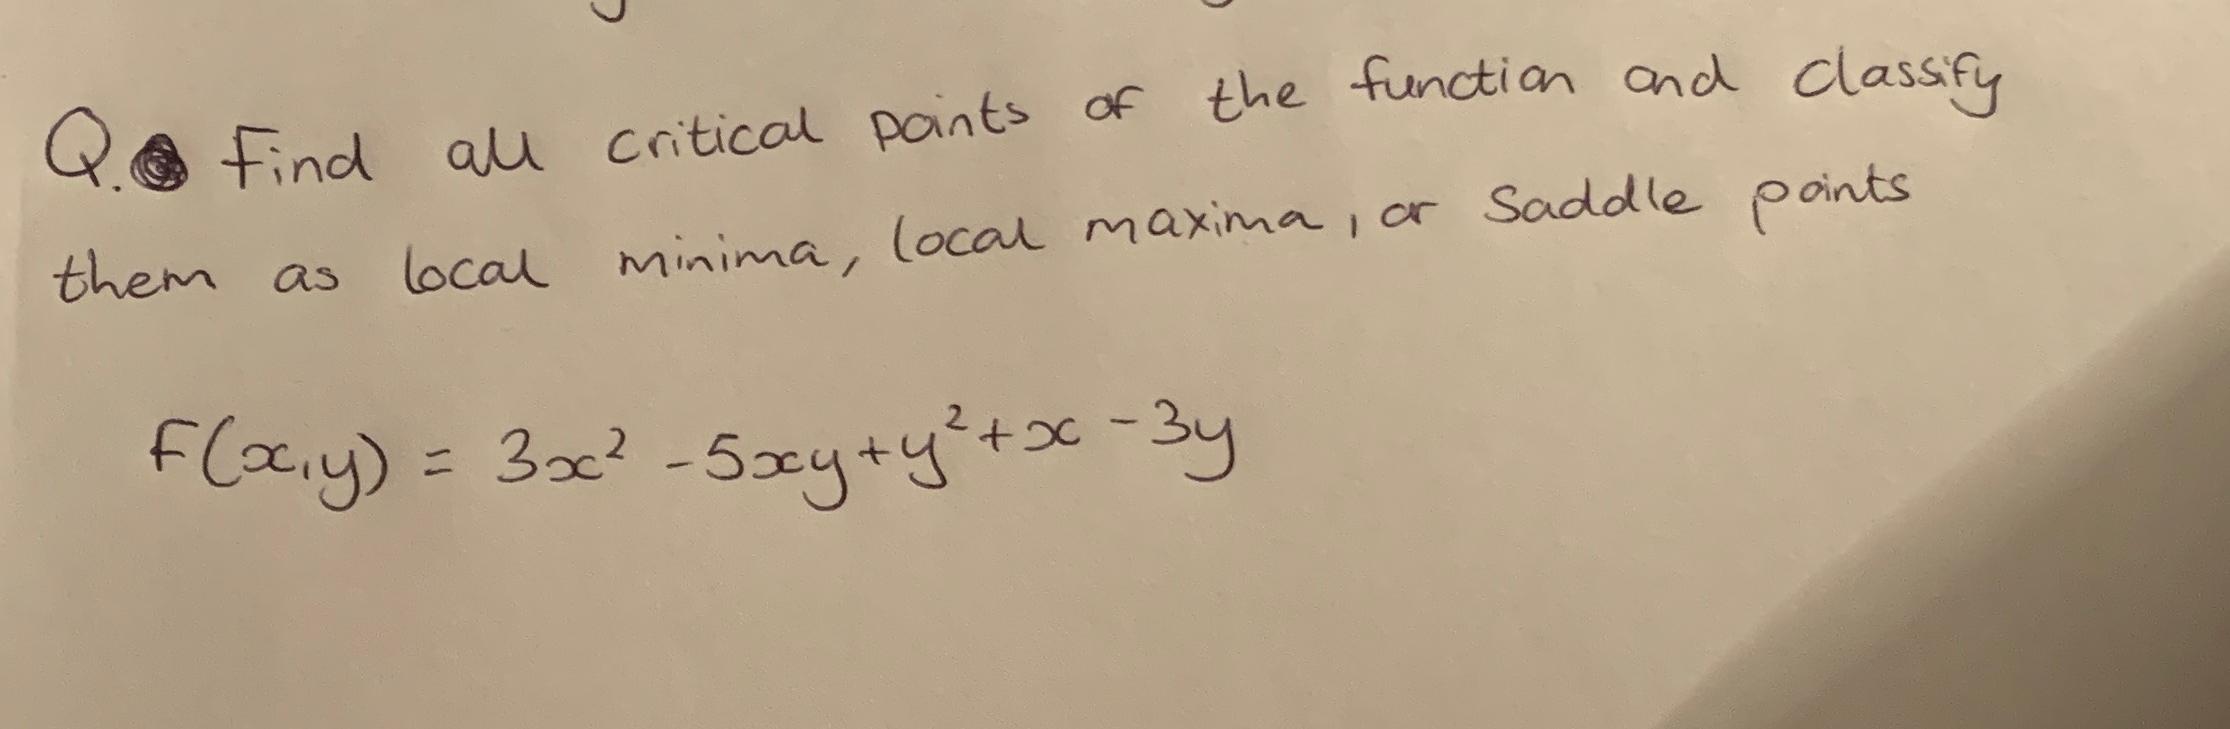 Q. Find all critical points of the function and classify
them as local minima, local maxima, or saddle points
F(x,y) = 3x² - 5xy + y² + x - 3y